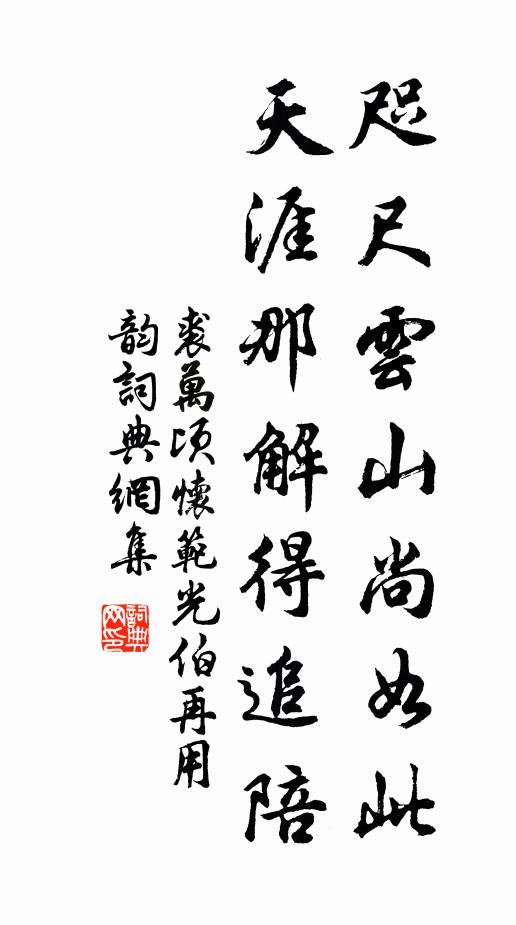 咫尺雲山尚如此
天涯那解得追陪
裘萬頃懷範光伯再用
韵詞典網集
詞典網印